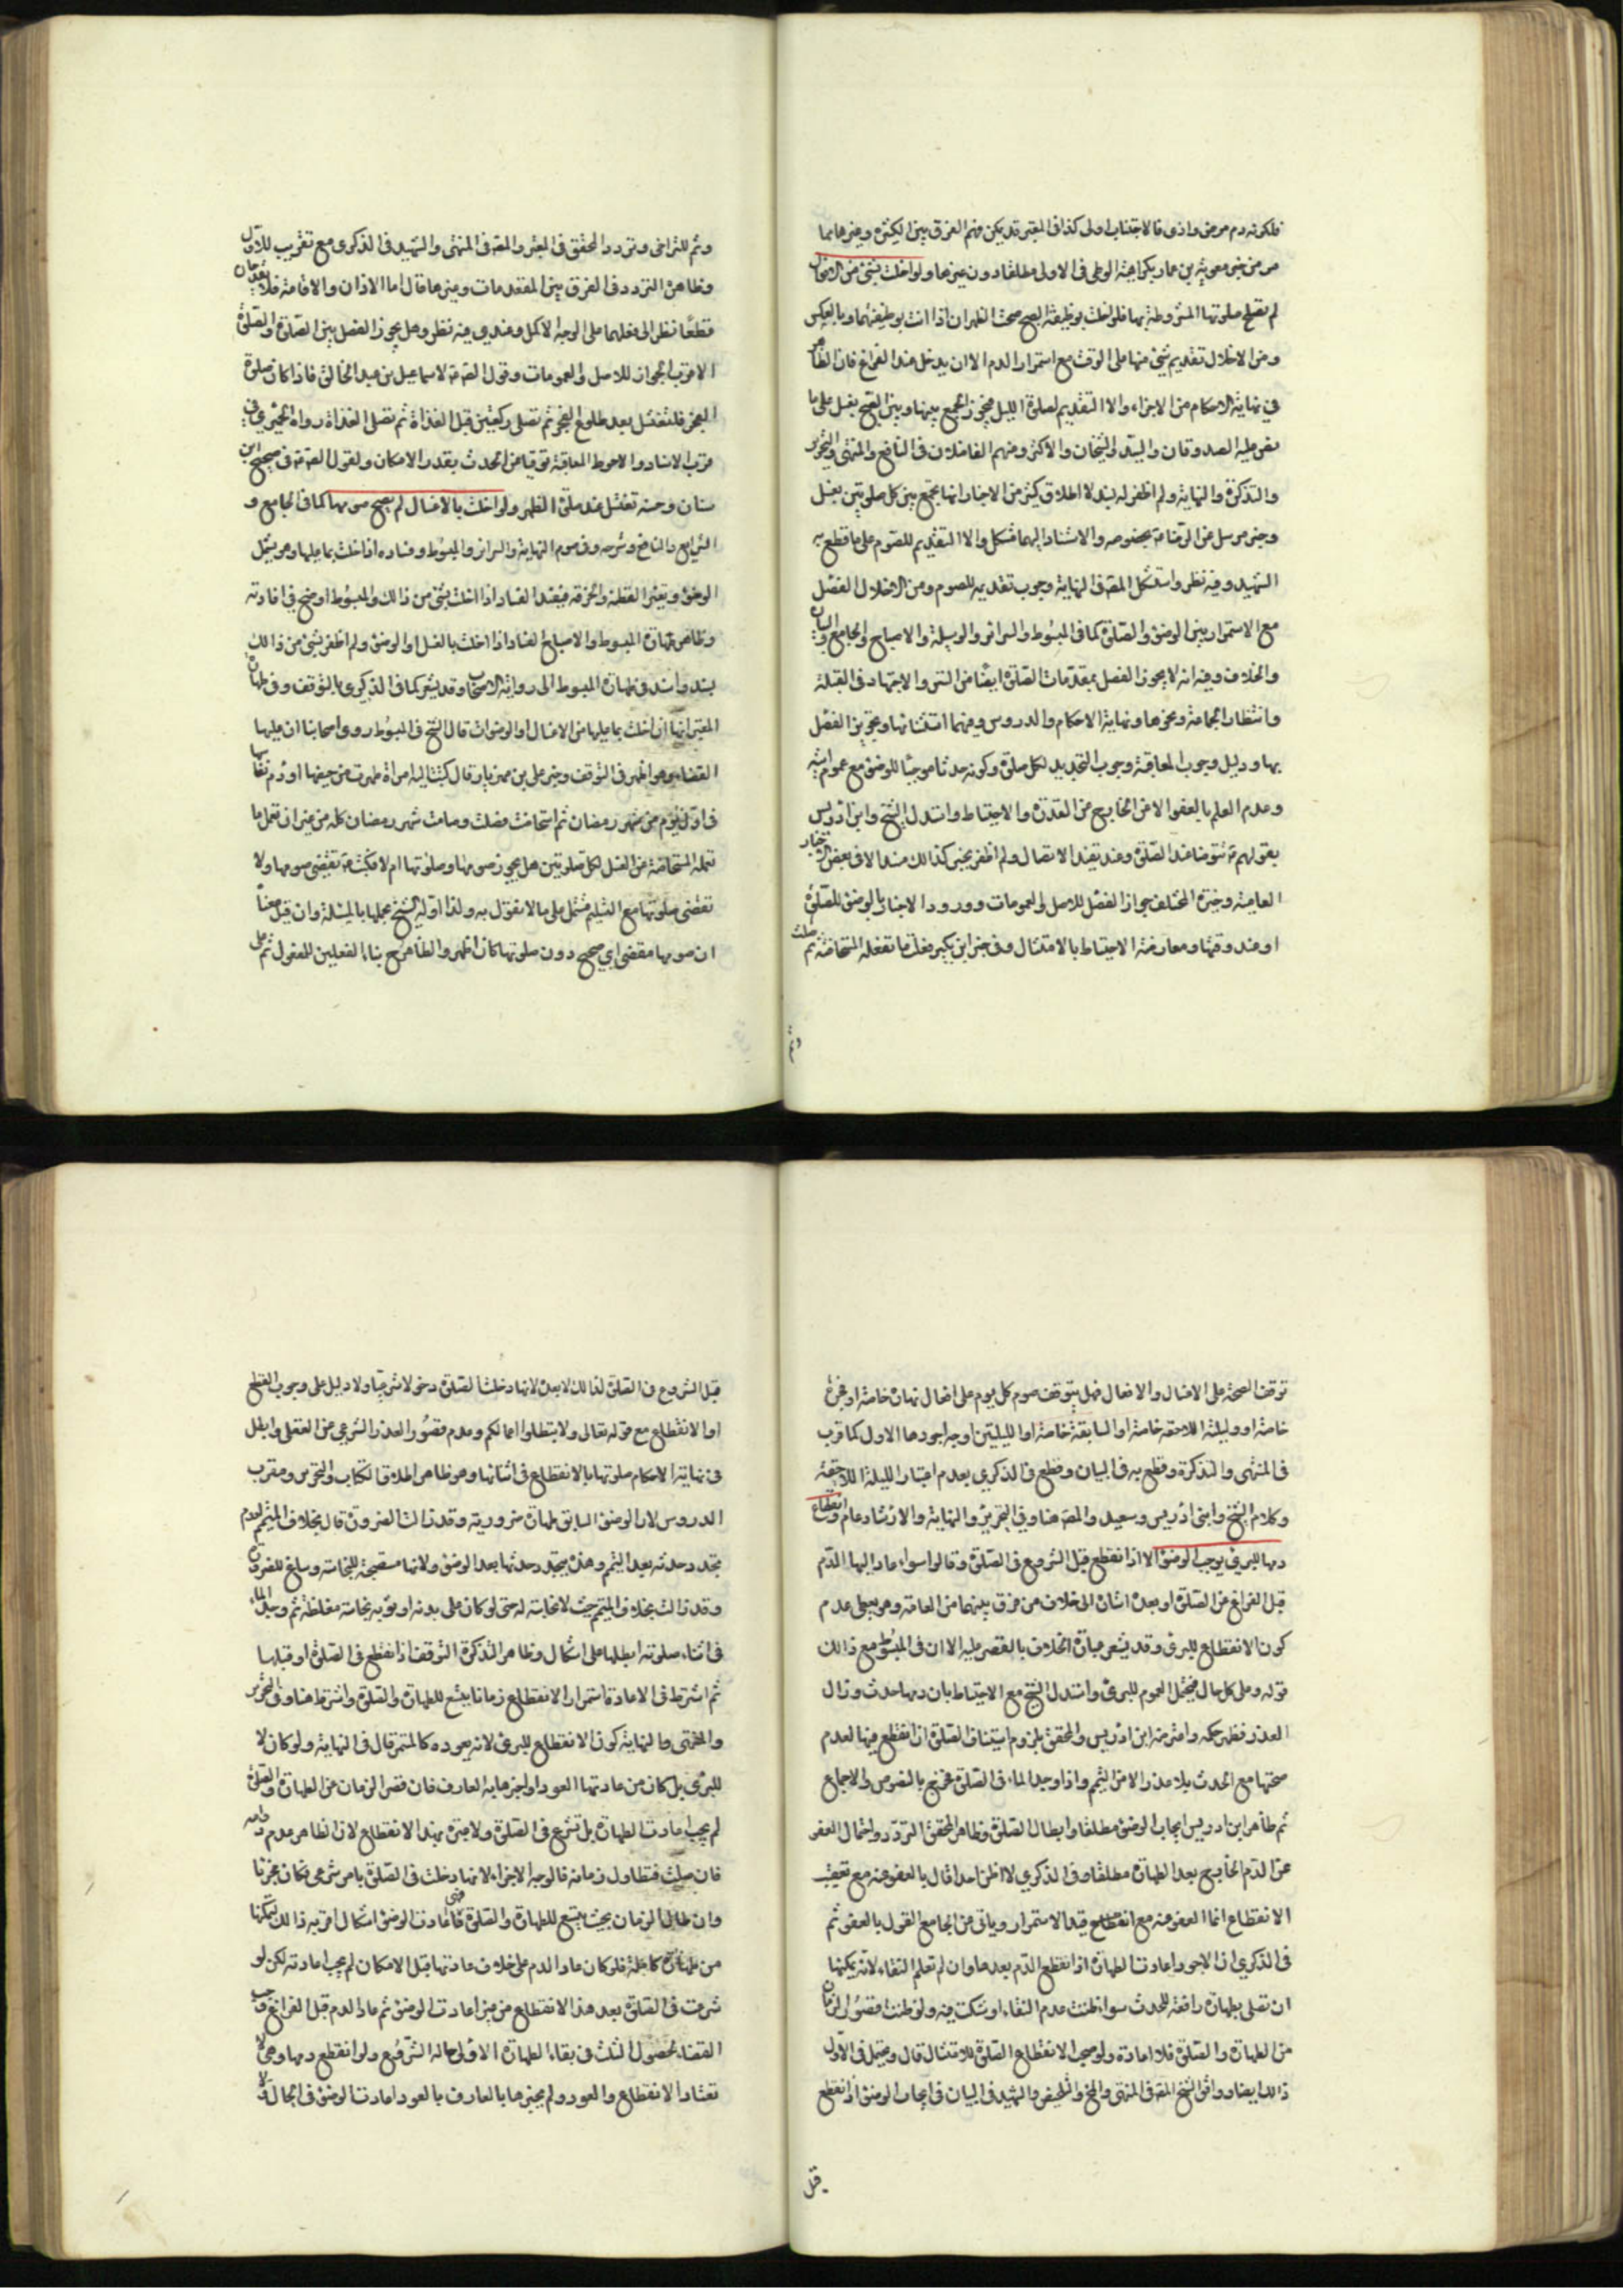 فلكونه دم مرض واذى فالاجتناب اولى كذا في المعتبر قد يمكن فهم الفرق بين الكثيرة وغيرها مما
مر من خبر معوية بن عمار بكراهية الوطي في الاولى مطلقا دون غيرها ولو اخلت بشئ من الافعال
لم تصح صلوتها المشروطة بها فلو اخلت بوظيفة الصبح صحت الظهران اذا اتت بوظيفتهما وبالعكس
ومن الاخلال تقديم شئ منها على الوقت مع استمرار الدم الا ان يدخل عند الفراغ فان الظاهر
في نهاية الاحكام من الاجزاء والا التقديم لصلوة الليل فيجوز الجمع بينها وبين الصبح بغسل على ما
نص عليه الصدوقان والسيد والشيخان والاكثر ومنهم الفاضلان في النافع والمنتهى والتحرير
والتذكرة والنهاية ولم اظفر له بسند لاطلاق كثير من الاخبار انها تجمع بين كل صلوتين بغسل
وخبر مرسل عن الرضا بخصوصه والاستناد اليهما مشكل والا التقديم للصوم على ما قطع به
الشهيد وفيه نظر واستشكل المصـ في النهاية وجوب تقديمه للصوم ومن الاخلال الفصل
مع الاستمرار بين الوضوء والصلوة كما في المبسوط والسرائر والوسيلة والاصباح والجامع والبيان
والخلاف وفيه انه لا يجوز الفصل بمقدمات الصلوة ايضا من الستر والاجتهاد في القبلة
وانتظار الجماعة ونحوها ونهاية الاحكام والدروس وفيهما استثناؤها وتجويز الفصل
بها ودليل وجوب المعاقبة وجوب التجديد لكل صلوة وكونه حدثا موجبا للوضوء مع عموم ادلته
وعدم العلم بالعفو الا عن الخارج من القدرة والاحتياط واستدل الشيخ وابن ادريس
بقولهم تتوضأ عند الصلوة وعند تفيد الاتصال ولم اظفر بخبر كذالك مسندا لا في بعض الاخبار
العامية وخيرة المختلف جواز الفصل للاصل والعمومات وورود الاخبار بالوضوء للصلوة
او عند وقتها ومعارضة الاحتياط بالامتثال وفي خبر ابن بكير فعلت ما تفعله المستحاضة ثم صلت
وثم
وثم للتراخي وتردد المحقق في المعتبر والمصـ في المنتهى والشهيد في الذكرى مع تقريب للاول
وظاهره التردد في الفرق بين المقدمات وغيرها قال اما الاذان والاقامة فلا يقدحان
قطعا نظر الى فعلهما على الوجه الاكمل وعندي فيه نظر وهل يجوز الفصل بين الصلوة والصلوة
الاقرب الجواز للاصل والعمومات وقول الصـ لاسماعيل بن عبد الخالق فاذا كان صلوة
الفجر فلتغتسل بعد طلوع الفجر ثم تصلي ركعتين قبل الغداة ثم تصلي الغداة رواه الحميري في
قرب الاسناد والاحوط المعاقبة توقيا من الحدث بقدر الامكان ولقول الصـ في صحيح ابن
سنان وحسنه تغتسل عند صلوة الظهر ولو اخلت بالاغسال لم يصح صومها كما في الجامع و
الشرايع والنافع وشرحه وفي صوم النهاية والسرائر والمبسوط وفساده اذا اخلت بما عليها وهو يشمل
الوضوء وتغير القطنة والخرقة فيفيد الفساد اذا اخلت بشئ من ذالك والمبسوط اوضح في افادته
وظاهر طهارة المبسوط والاصباح الفساد اذا اخلت بالغسل او الوضوء ولم اظفر بشئ من ذالك
بسند واسند في طهارة المبسوط الى رواية الاصحاب وقد يشعر كما في الذكرى بالتوقف وفي طهارة
المعتبر انها ان اخلت بما عليها من الاغسال او الوضوات قال الشيخ في المبسوط روى اصحابنا ان عليها
القضاء وهو اظهر في التوقف وخبر علي بن مهزيار قال كتبت اليه امراة طهرت من حيضها او دم نفاسها
في اول يوم من شهر رمضان ثم استحاضت فصلت وصامت شهر رمضان كله من غير ان تعمل ما
تعمله المستحاضة من الغسل لكل صلوتين هل يجوز صومها وصلوتها ام لا فكتب تقضي صومها ولا
تقضي صلوتها مع التسليم مشتمل على ما لا نقول به ولذا اوله الشيخ بحملها بالمسئلة وان قيل معناه
ان صومها مقضي اي صحيح دون صلوتها كان اظهر والظاهر ح بناء الفعلين للمفعول ثم على
توقف الصحة على الاغسال والافعال فهل يتوقف صوم كل يوم على افعال نهاره خاصة او فجره
خاصة او وليلته اللاحقة خاصة او السابقة خاصة او الليلتين اوجه اجودها الاول كما قرب
في المنتهى والتذكرة وقطع به في البيان وقطع في الذكرى بعدم اعتبار الليلة اللاحقة
وكلام الشيخ وابني ادريس وسعيد والمصـ هنا وفي التحرير والنهاية والارشاد عام وانقطاع
دمها للبرء يوجب الوضوء الا اذا انقطع قبل الشروع في الصلوة وقالوا سواء عاد اليها الدم
قبل الفراغ من الصلوة او بعده اشارة الى خلاف من فرق بينهما من العامة وهو يعطي عدم
كون الانقطاع للبرء وقد يشعر عبارة الخلاف بالقصر عليه الا ان في المبسوط مع ذالك
قوله وعلى كل حال فيحتمل العموم للبرء واستدل الشيخ مع الاحتياط بان دمها حدث وزال
العذر فظهر حكمه واعترضه ابن ادريس والمحقق بلزوم استيناف الصلوة اذا انقطع فيها لعدم
صحتها مع الحدث بلا عذر الا من التيمم واذا وجد الماء في الصلوة فخرج بالنصوص والاجماع
ثم ظاهر ابن ادريس ايجاب الوضوء مطلقا وابطال الصلوة وظاهر المحقق التردد واحتمال العفو
عن الدم الخارج بعد الطهارة مطلقا وفي الذكرى لا اظن احدا قال بالعفو عنه مع تعقب
الانقطاع انما العفو عنه مع انقطاع قيد الاستمرار وياتي عن الجامع القول بالعفو ثم
في الذكرى ان الاجود اعادت الطهارة اذا انقطع الدم بعدها وان لم تعلم النقاء لانه يمكنها
ان تصلي بطهارة رافعة للحدث سواء ظنت عدم النقاء او شكت فيه ولو ظنت قصور الزمان
عن الطهارة والصلوة فلا اعادة ولو صحب الانقطاع الصلوة للامتثال قال ويحتمل في الاول
ذالك ايضا ووافق الشيخ المصـ في المنتهى والنهج والتلخيص والشهيد في البيان في ايجاب الوضوء اذا انقطع
قبل
قبل الشروع في الصلوة لذالك لا بعده لانها دخلت الصلوة دخولا شرعيا ولا دليل على وجوب القطع
او الانقطاع مع قوله تعالى ولا تبطلوا اعمالكم وعدم قصور العذر الشرعي عن العقلي وابطل
في نهاية الاحكام صلوتها بالانقطاع في اثنائها وهو ظاهر اطلاق الكتاب والتحرير ومقرب
الدروس لان الوضوء السابق طهارة ضرورية وقد زالت الضرورة قال بخلاف المتيمم لعدم
تجدد حدثه بعد التيمم وهذه يتجدد حدثها بعد الوضوء ولانها مستصحبة للنجاسة وساغ للضرورة
وقد زالت بخلاف المتيمم حيث لا نجاسة له حتى لو كان على بدنه او ثوبه نجاسة مغلظة ثم وجد الماء
في اثناء صلوته ابطلها على اشكال وظاهر التذكرة التوقف اذا انقطع في الصلوة او قبلها
ثم اشترط في الاعادة استمرار الانقطاع زمانا يتسع للطهارة والصلوة واشترط هنا وفي التحرير
والمنتهى والنهاية كون الانقطاع للبرء لانه بعوده كالمستمر قال في النهاية ولو كان لا
للبرء بل كان من عادتها العود او اخبرها به العارف فان قصر الزمان عن الطهارة والصلوة
لم يجب اعادت الطهارة بل تشرع في الصلوة ولا عبرة بهذا الانقطاع لان الظاهر عدم دوامه
فان صلت فتطاول زمانه فالوجه الاجزاء لانها دخلت في الصلوة بامر شرعي فكان مجزيا
وان طال الزمان بحيث يتسع للطهارة والصلوة ففي اعادت الوضوء اشكال اقربه ذالك لتمكنها
من طهارة كاملة فلو كان عاد الدم على خلاف عادتها قبل الامكان لم يجب اعادته لكن لو
شرعت في الصلوة بعد هذا الانقطاع من غير اعادت الوضوء ثم عاد الدم قبل الفراغ وجب
القضاء لحصول الشك في بقاء الطهارة الاولى حالة الشروع ولو انقطع دمها وهي لا
تعتاد الانقطاع والعود ولم يخبرها بالعارف بالعود اعادت الوضوء في الحال ولا